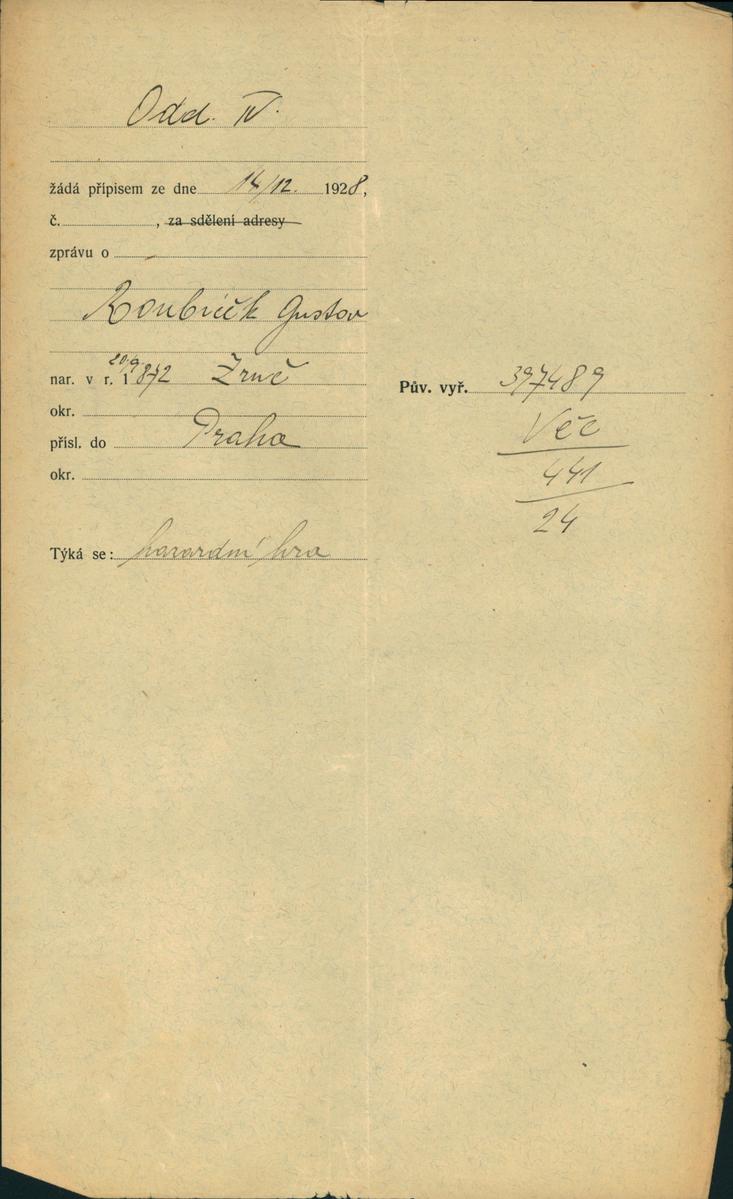 Odd. IV.
žádá přípisem ze dne 14/12. 1928,
č. , za sdělení adresy
zprávu o
Roubíček Gustav
20/9.
nar. v r. 1872 Zruč
okr.
přísl. do Praha
okr.
Týká se: hazardní hra
Pův. vyř. 397489
Več
441
24